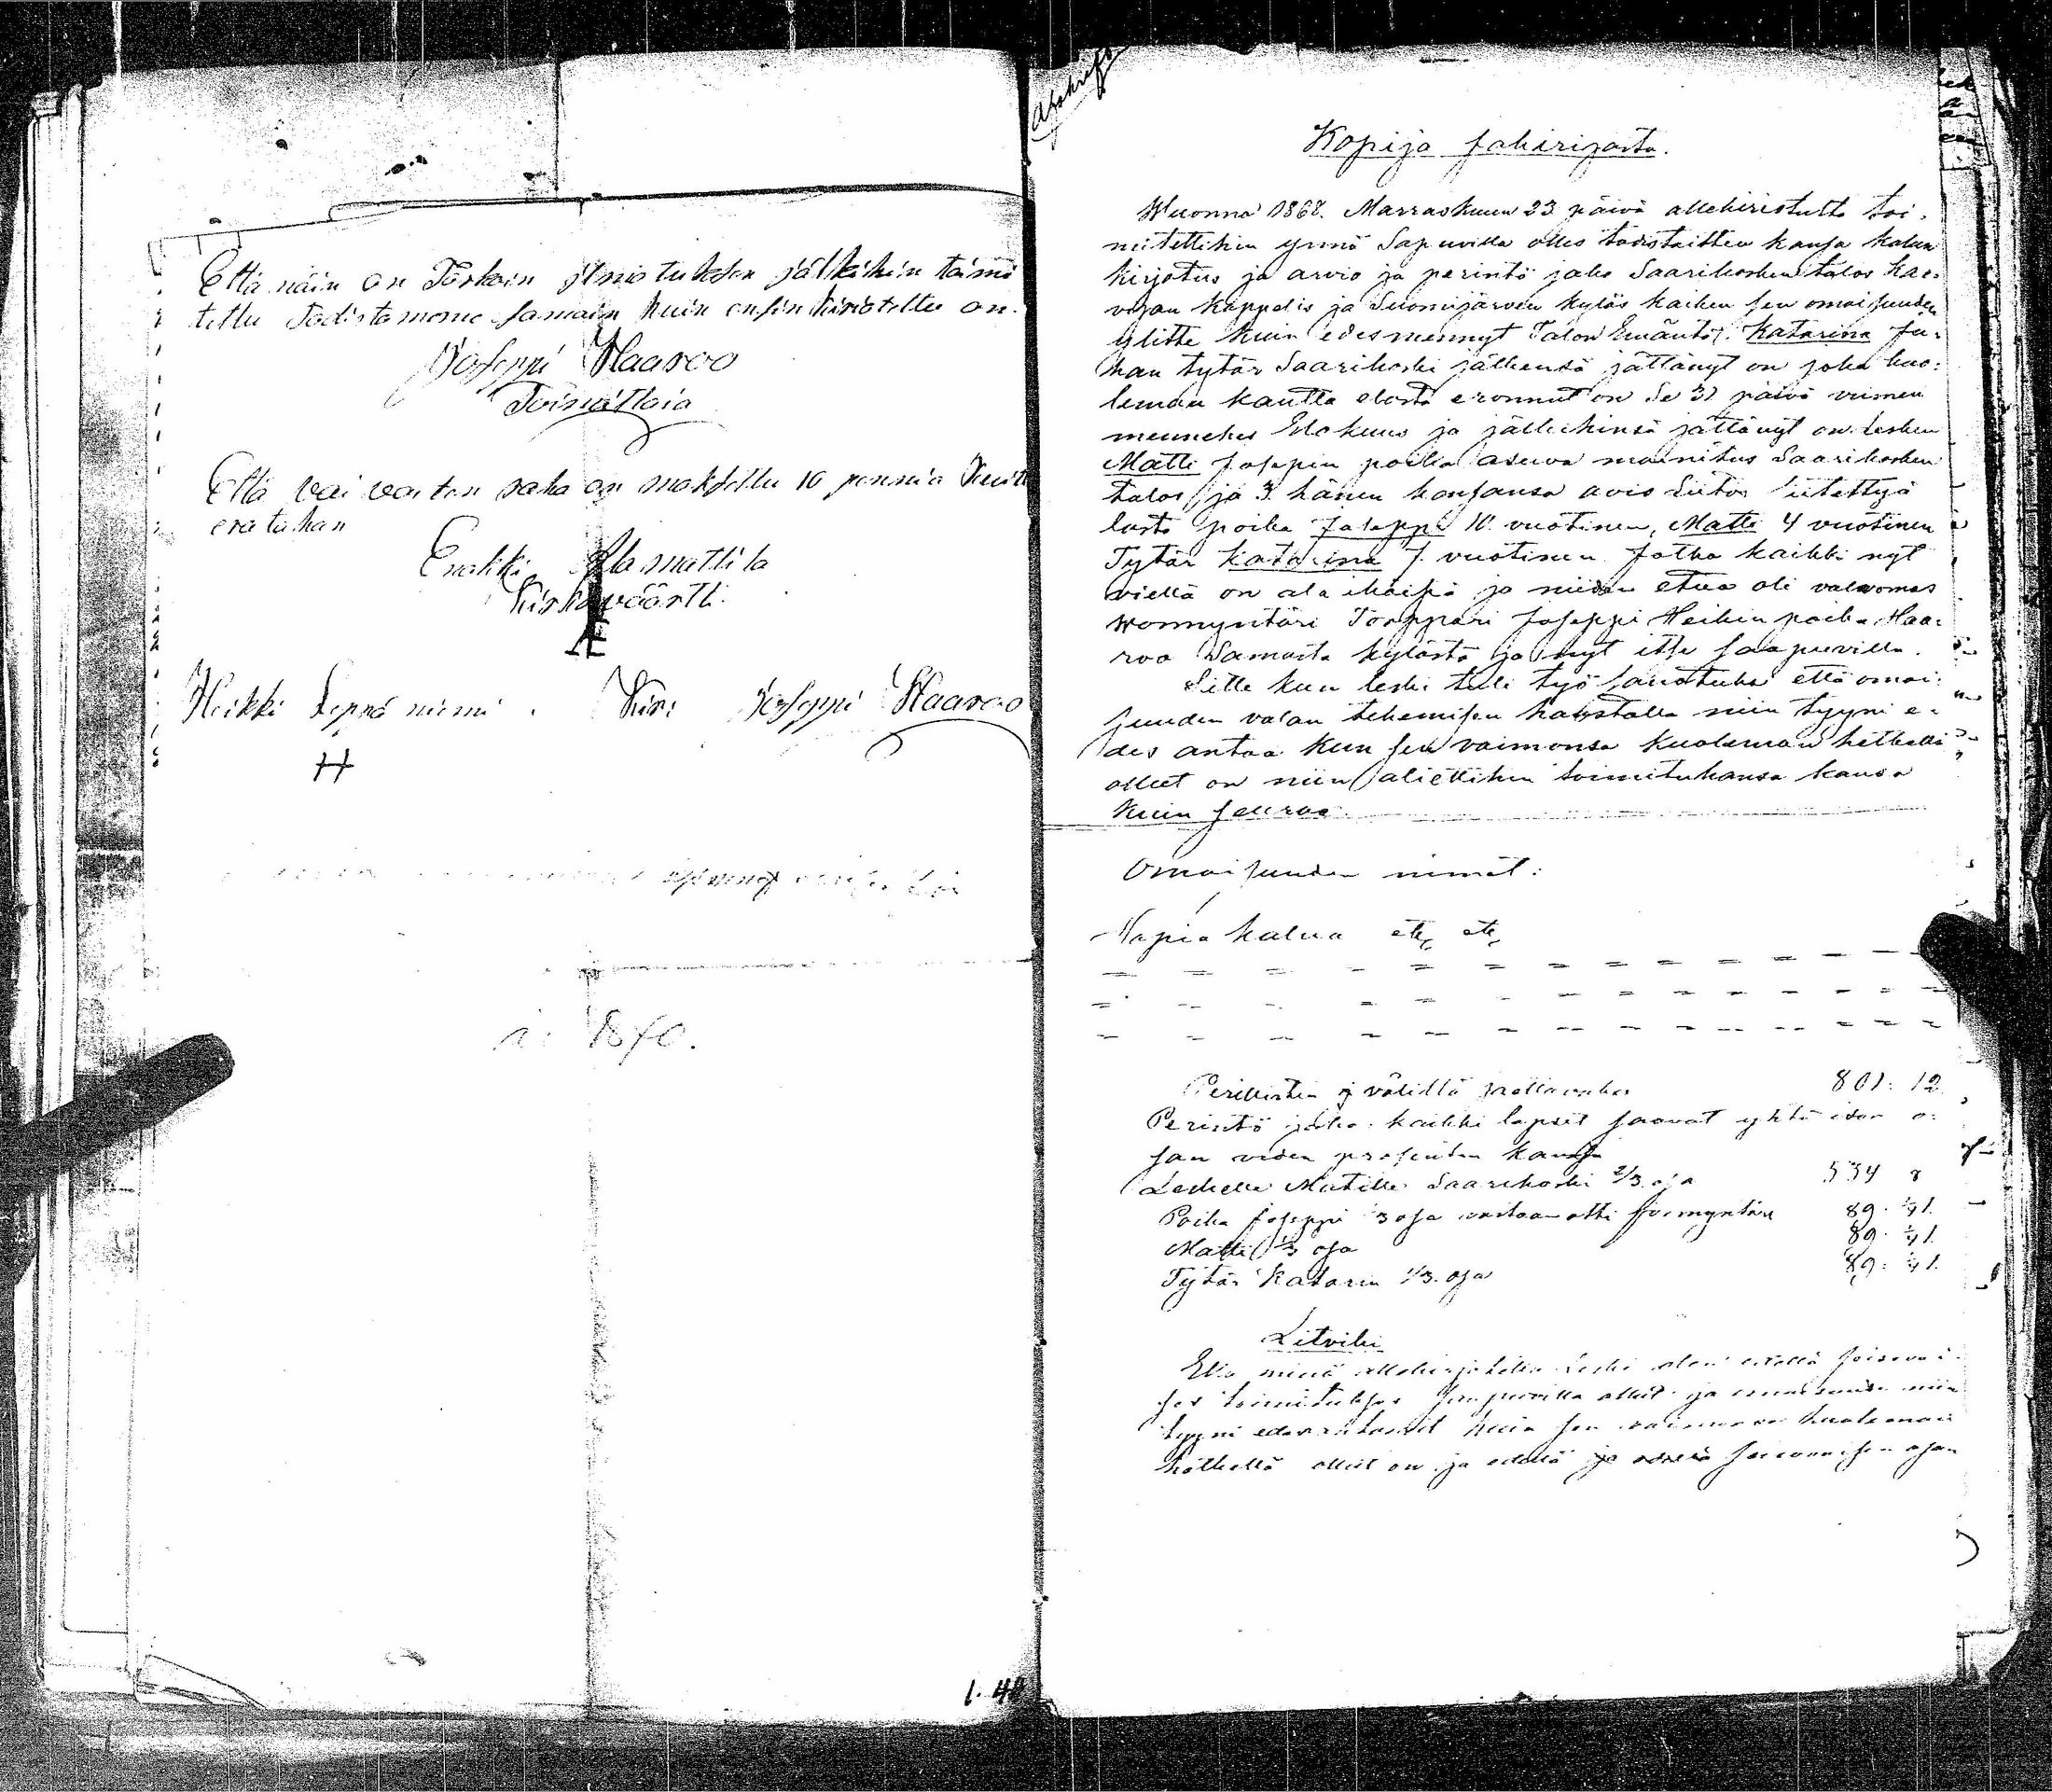 Että näin on Tärkein ilmoituksen jälkihin toimi
tettu Todistamme samain kuin ensin kirioitettu on.
Joseppi Haaroo
Toimittaia
Että vaivasten raha on maksettu 10 penniä kuit
era tahan
Erkki Alamattila
Kirkoväärtti
Heikki Leppäniemi . Kiri Joseppi Haaroo
H
1870.
1. 40
Afskrift
Kopija fakirizasta.
Wuonna 1868. Marraskuun 23 päivä allekiriotulta toi-
mitettihin ynnä Sapuvilla olles todistaitten kansa kalun
kirjotus ja arvio ja perintö jako Saarikosken talos Kar-
vian kappelis ja Suomijärven kyläs kaiken sen omaisuuden
ylitte kuin edesmennyt Talon Emäntä Katarina Ju-
han tytär Saarikoski jälkensä jättänyt on joka kuo-
leman kautta elosta eronnut on Se 31 päivä viimen
mennehes Elokuus ja jällechinsä jättänyt on lesken
Matti Josepin poika asuva mainitus Saarikosken
talos ja 3. hänen kansansa avio Liitos siitettyä
lasta poika Joseppi 10 vuotinen, Matti 4 vuotinen
Tytär Katarina 7. vuotinen Jotka kaikki nyt
viellä on ala ikäisiä ja niiden etua oli valvomas
Wormyntäri Torppari Joseppi Heikin poika Haa-
roo Samasta kylästä ja nyt itse saapuvilla.
Sitte kun leski tuli työ lauotuksi että omai-
suuden valan tekemisen kaustalla niin tyyni e-
des antaa kun sen vaimonsa kuoleman hetkellä
ollut on niin aliettihin toimituhansa kansa
kuin seuraa.
Omaisuuden nimet:
Hopia kalua etc etc
Perillisten välillä jaettavaksi 801: 12
Perintö jako. kaikki lapset saavat yhtä ison o-
san viden prosentin kansa
Leskelle Matille Saarikoski 2/3 osa 534 8
Poika Joseppi 1/3 osa vastaan otti formyntäri 89.
Matti 1/3 osa 89.
Tytär Katarin 1/3. osa 89.
Litviki
Että minä allekirjotettu Leski olen edellä seisovai-
ses toimitukses saapuvilla ollut ja omaisuuden niin
tyyni edes antanut kuin sen vaimovan kuoleman
hetkellä ollut on ja edellä ja